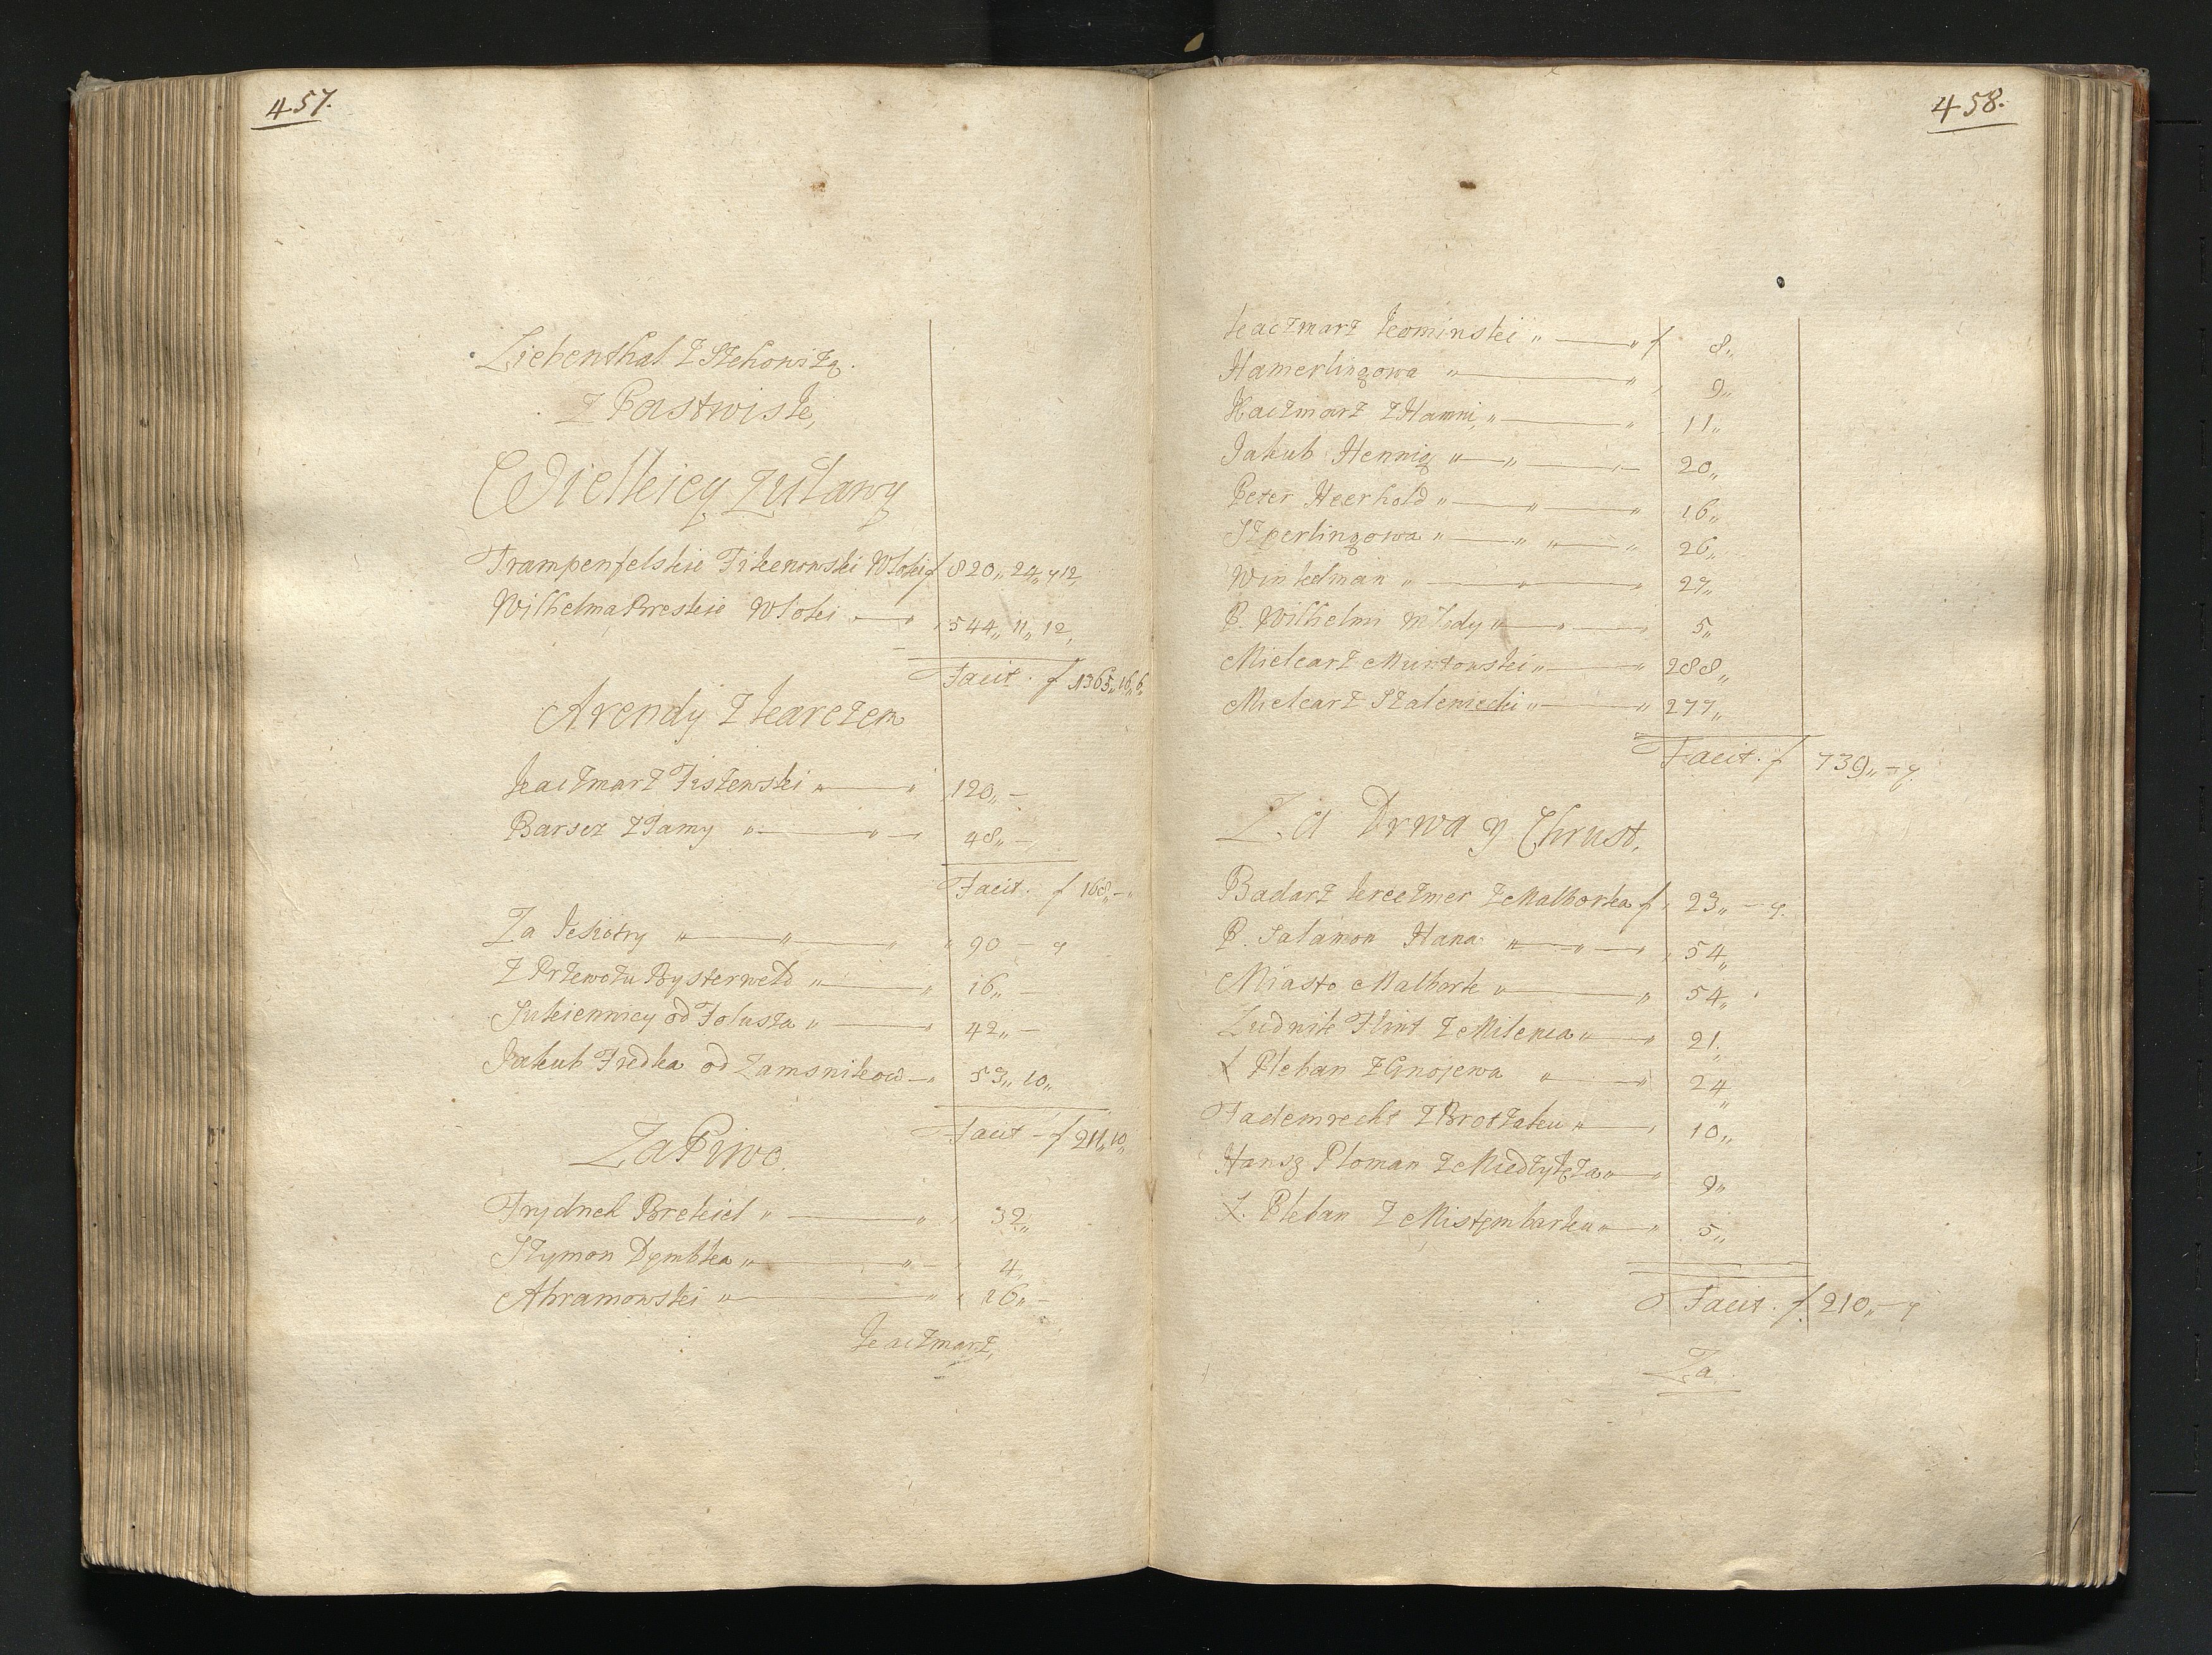 457.
Liebenthal z Szkowitzą.
z Pastwisk,
Wielkiey Zuławy
Trampenfelskie Fikenowski Włoki f 820„ 24„ 12
Wilhelma Breskie Włoki „ — „ 544„ 11„ 12„
Facit. f 1365„ 16„ 6„
Arendy z karczem
kaczmarz Fiszewski „ — „ 120„ —
Barscz z Tamy „ — „ — 48„ —
Facit. f 168„ —
Za Jesiotry „ — „ — „ „ 90 — „
z Przewozu Bysterweld „ — „ 16„ —
Sukiennicy od Folusza „ — „ 42„ —
Jakub Fredka od Zamsnikow — „ 53„ 10„
Facit — f 211„ 10„
Za Piwo.
Frydrich Brekiel „ — „ „ 32„
Szymon Dymbka „ — „ — „ 4„
Abramowski „ — „ „ 26„ —
kaczmarz,
458.
kaczmarz kominski „ — „ f 8„
Hamerlingowa „ — „ „ 9„
Kaczmarz z Hamni, „ — „ 11„
Jakub Hennig „ — „ — „ 20„
Peter Heerhold „ — „ — „ 16„
Szperlingowa „ — „ „ — „ 26„
Winkelman „ — „ — „ 27„
P. Wilhelm Młody „ — „ — „ 5„
Mielcarz Muntowski „ — „ 288„
Mielcarz Szaleniecki „ — „ 277„
Facit. f 739„ — „
Za Drwa y Chrust,
Badarz kreczmer z Malborka f „ 23„ — „
P. Salamon Hana „ — „ — „ „ 54„
Miasto Malbork „ — „ 54„
Ludnik Flint z Milenca „ — „ 21„
X Pleban z Gnojewa „ — „ 24„
Fademrecht z Brotzaku „ — „ 10„
Hansz Ploman z Miedzyłęża „ — „ 9„
X. Pleban z Mistembarku „ — „ 5„
Facit. f 210„ — „
Za